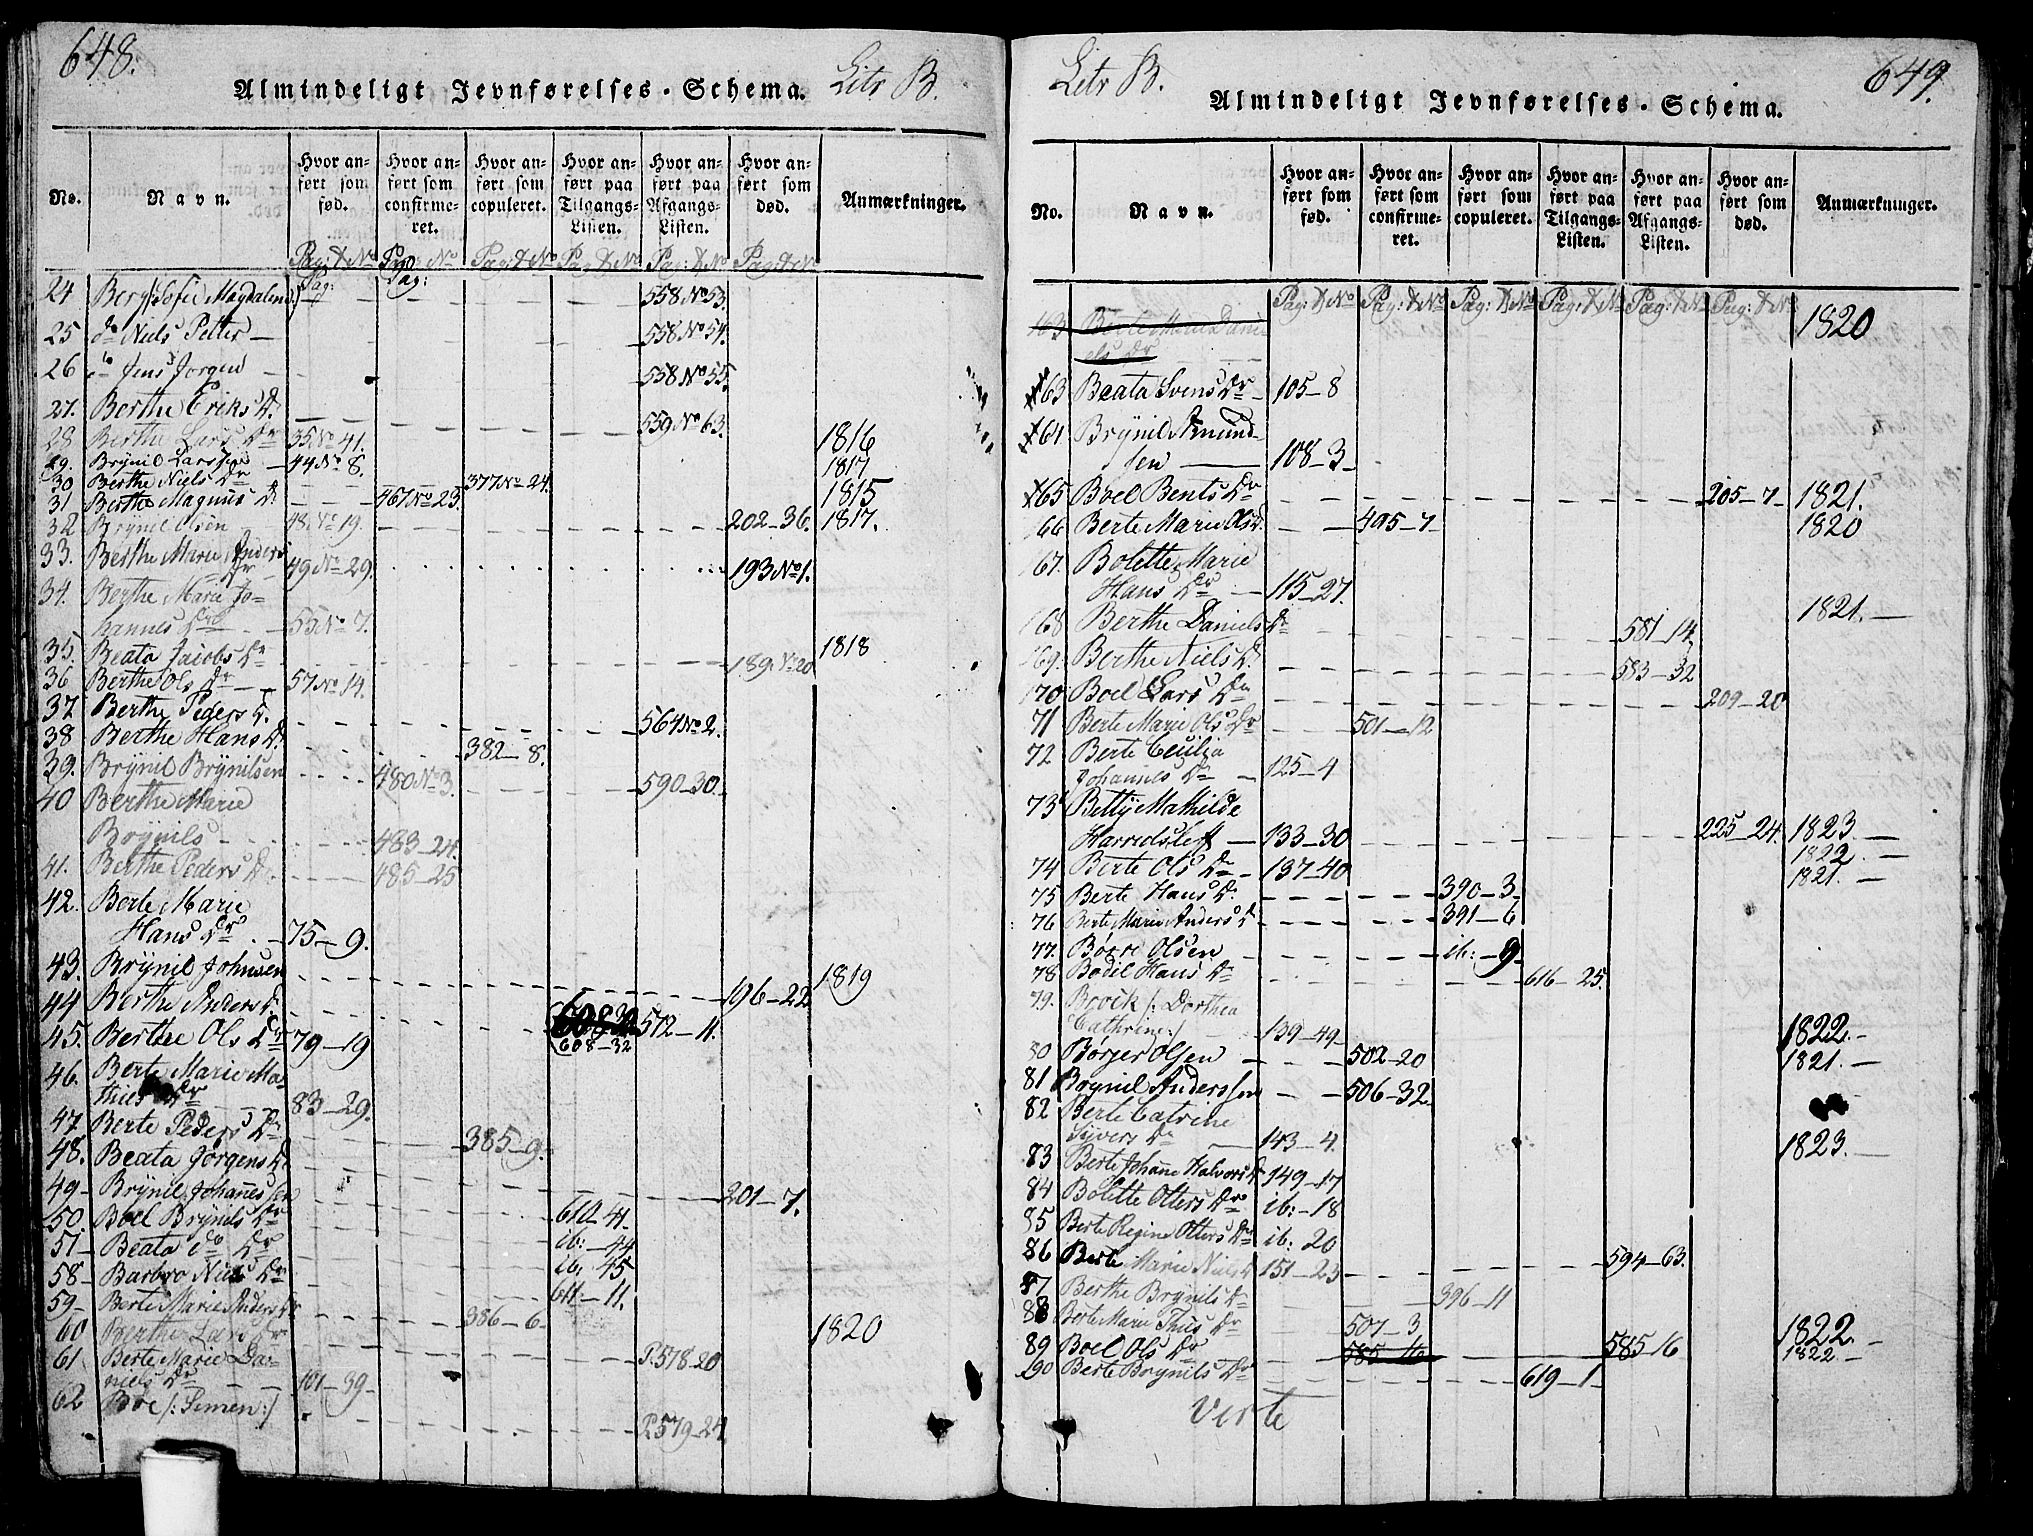 648.
Almindeligt Jevnførelses-Schema. Litr B.
No.
Navn.
Hvor an-
ført som
fød.
Hvor an-
ført som
confirme-
ret.
Hvor an-
ført som
copuleret.
Hvor an-
ført paa
Tilgangs-
Listen.
Hvor an-
ført paa
Afgangs-
Listen.
Hvor an-
ført som
død.
Anmærkninger.
Pag: & No Pag: No Pag: & No Pag & No Pag: & No Pag & No
Pag: Pag:
24 Berg /: Sofie Magdalena :/ 558 No 53.
25 do Niels Petter 558 No 54.
26 do Jens Jorgen 558 No 55.
27. Berthe Eriks Dr. 559 No 63.
28 Berthe Lars Dr 35 No 41. 1816
29. Brÿnil Larssen 44 No 8. 1817
30 Berthe Niels Dr 377 No 24.
31 Berthe Magnus Dr 467 No 23. 1815
32 Brÿnil Olsen 48 No 19. 202-36. 1817.
33. Berthe Marie Anders
Dr 49 No 29. 193 No 1.
34. Berthe Marie Jo-
hannes Dr 53 No 7.
35. Beata Jacobs Dr 189 No 20 1818
36. Berthe Ols Dr 57 No 14.
37 Berthe Peders D. 564 No 2.
38 Berthe Hans D. 382-8.
39. Brÿnil Brÿnilsen 480 No 3. 590-30.
40 Berthe Marie
Brÿnils 483-24.
41. Berthe Peders Dr 485-25
42. Berte Marie
Hans Dr 75-9.
43. Brÿnil Johnsen 196-22 1819
44 Berthe Anders D. 572-11.
45. Berthe Ols Dr 79-19 608-32
46. Berte Marie Ma-
thies Dr 83-29.
47 Berte Peders Dr 385-9.
48. Beata Jorgens D.
49- Brÿnil Johannessen 201-7.
50. Boel Brÿnils Dr 610-41.
51- Beata do Dr ib:-44
58- Barbro Niels Dr ib:-45
59- Berte Marie Anders Dr 611-11.
60 Berthe Lars Dr 386-6. 1820
61 Berte Marie Da-
niels Dr 101-39 P. 578-20
62 Boe /: Simen :/ P. 579-24.
649.
Litr B.
Almindeligt Jevnførelses-Schema.
No.
Navn.
Hvor an-
ført som
fød.
Hvor an-
ført som
confirme-
ret.
Hvor an-
ført som
copuleret.
Hvor an-
ført paa
Tilgangs-
Listen.
Hvor an-
ført paa
Afgangs-
Listen.
Hvor an-
ført som
død.
Anmærkninger.
Pag: & No Pag: & No Pag: & No Pag: & No Pag: & No Pag: & No
163 Berte Marie Dani-
els Dr 1820
63 Beata Svens Dr 105-8
64 Brÿnil Amund-
sen 108-3
65 Boel Bents Dr 205-7 1821.
66 Berte Marie Ols D. 495-7 1820
67. Bolette Marie
Hans Dr 115-27.
168 Berthe Daniels Dr 581-14. 1821.
169. Berthe Niels D. 583-32
170 Boel Lars Dr 209-20
71 Berte Marie Ols Dr 501-12
72 Berte Cecilia
Johannes Dr 125-4
73 Bettÿ Mathilde
Harridsleff 133-30 225-24. 1823.
74 Berte Ols Dr 137-40 1822.
75 Berte Hans Dr. 390-3 1821.
76 Berte Marie Anders D. 391-6
77. Børre Olsen ib:-9
78 Bodil Hans Dr 616-25.
79. Brock /: Dorthea
Cathrine :/ 139-49 1822.
80 Børger Olsen 502-20 1821.
81 Brynil Anderssen 506-32
82 Berte Catrine
Sÿvers Dr 143-4.
83 Berte Johane Halvors Dr 149-17 1823.
84 Bolette Otters Dr ib:-18
85 Berte Regine Otters Dr ib: 20
86 Berte Marie Niels D 151-23 594-63.
87 Berthe Brÿnils Dr 396-11
88 Berte Marie Thies Dr 507-3 1822.
89 Boel Ols Dr 585-16 585-16 1822.
90 Berte Brÿnils Dr 619-1
Verte